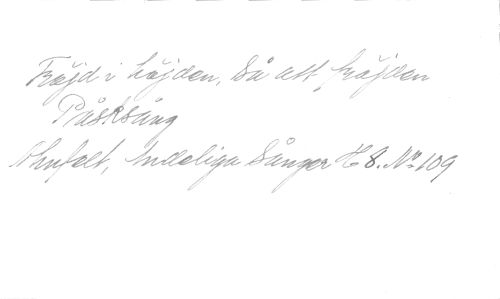 Fröjd i höjden, Så att fröjden
Påsksång
Ahnfelt, Andeliga Sånger H 8. No 109